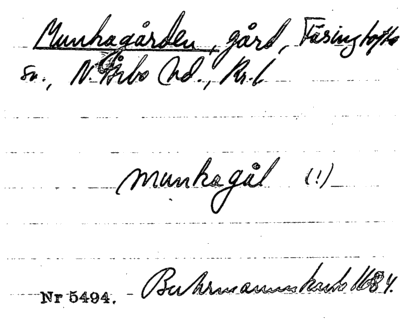 Munkagården, gård, Färingtofta
sn., N. Åsbo hd., Kr. l
Munkagål (!)
Nr 5494. Buhrmannskarta 1684.